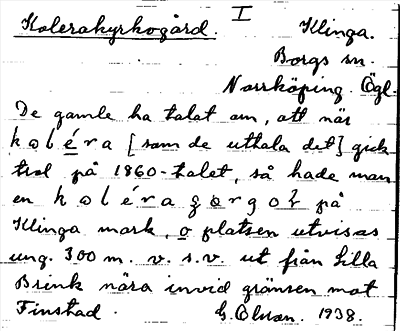 Kolerakyrkogård. I Klinga.
Borgs sn.
Norrköping. Ögl.
De gamle ha talat om, att när
koléra [som de uttala det] gick
trol på 1860-talet, så hade man
en koléragorgol på
Klinga mark, o platsen utvisas
ung. 300 m. v. s.v. ut från Lilla
Brink nära invid gränsen mot
Finstad. G. Olsson. 1938.